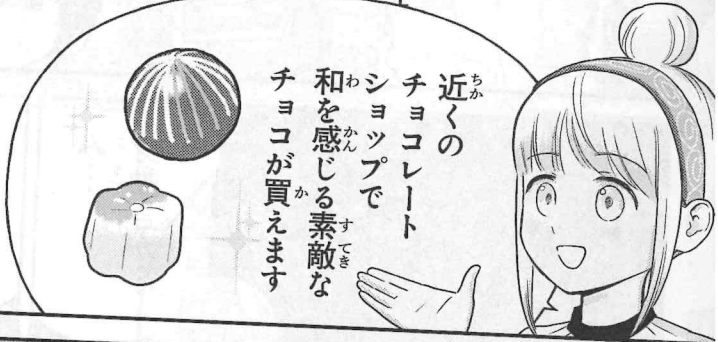 近くの
チョコレート
ショップで
和を感じる素敵な
チョコが買えます